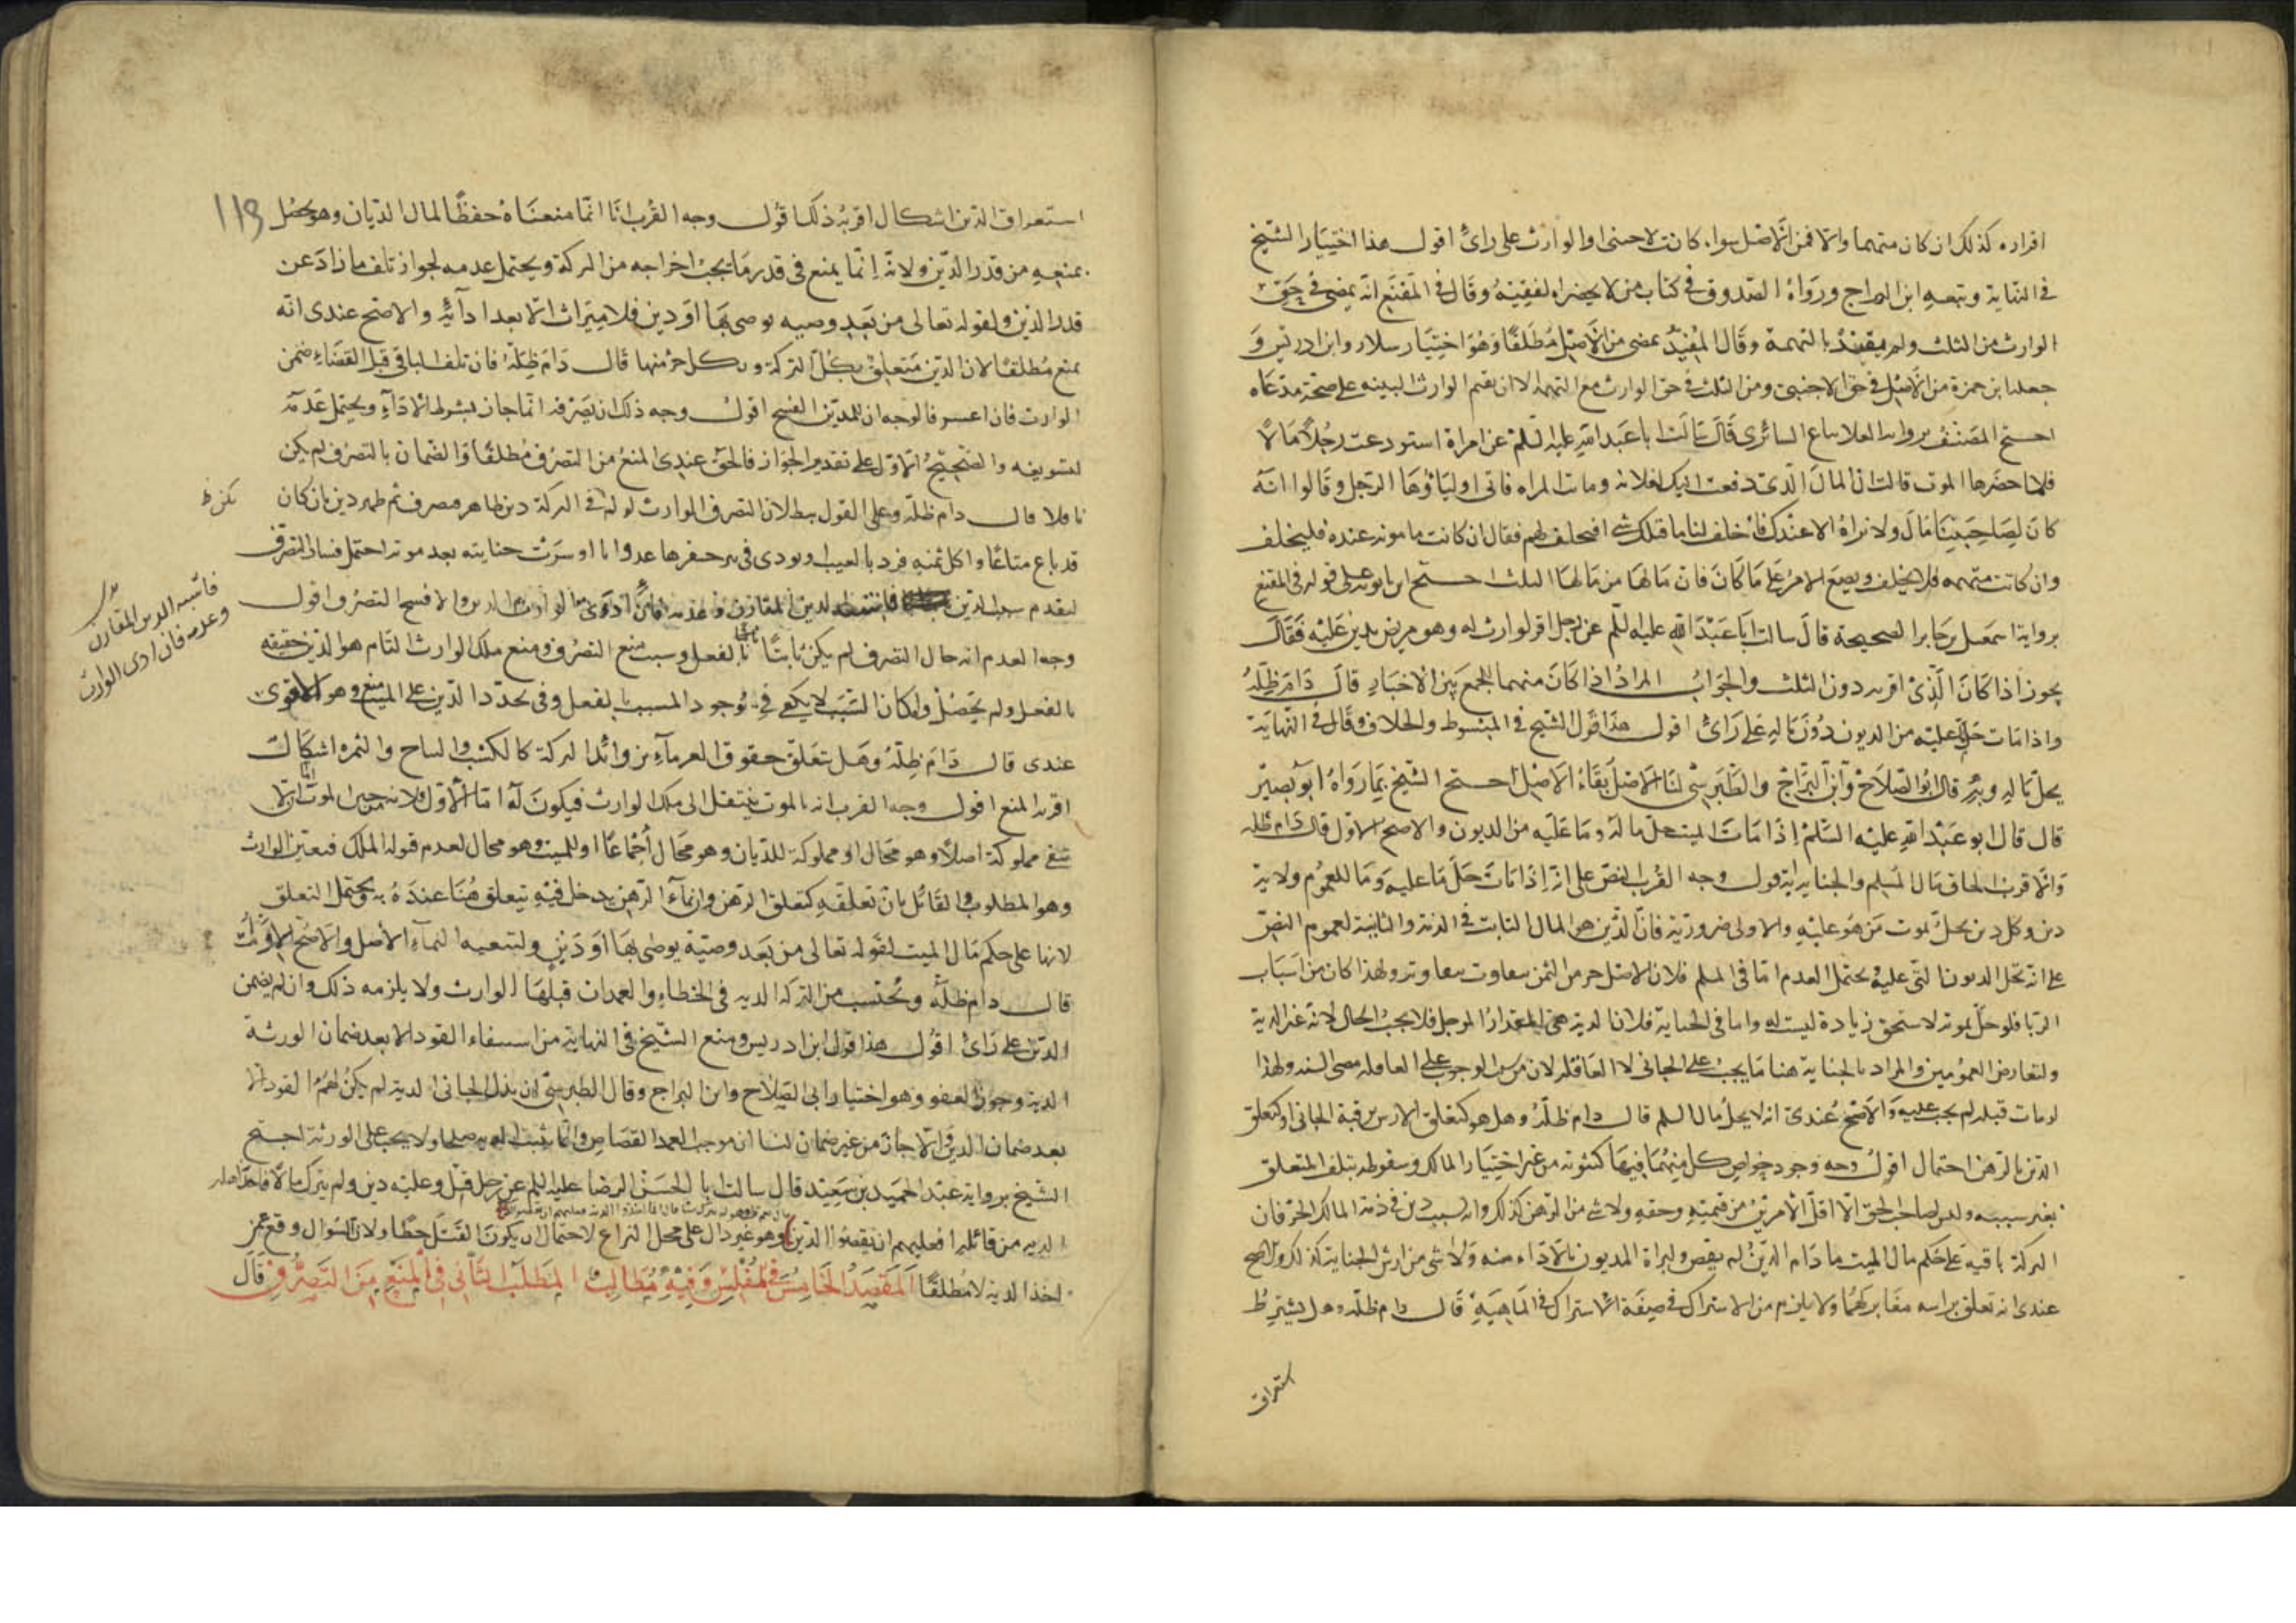 اقراره كذلك ان كان متهما والا فمن الاصل سواء كانت لاجنبى او الوارث على راى اقول هذا اختيار الشيخ
فى النهاية وتبعه ابن البراج ورواه الصدوق فى كتاب من لا يحضره الفقيه وقال فى المقنع انه يمضى فى حق
الوارث من الثلث ولم يقيد بالتهمة وقال المفيد يمضى من الاصل مطلقا وهو اختيار سلار وابن ادريس و
جعله ابن حمزة من الاصل فى حق الاجنبى ومن الثلث فى حق الوارث مع التهمة الا ان يقيم الوارث البينه على صحة مدعاه
احتج المصنف برواية العلا بياع السابرى قال سالت ابا عبد الله عليه السلم عن امراة استودعت رجلا مالا
فلما حضرها الموت قالت ان المال الذى دفعت اليك لفلانه وماتت المراه فاتى اولياؤها الرجل وقالوا انه
كان لصاحبتنا مال ولا نراه الا عندك فاحلف لنا ما قبلك شى افيحلف لهم فقال ان كانت مامونه عنده فليحلف
وان كانت متهمه فلا يحلف ويضع الامر على ما كان فان مالها من مالها الثلث احتج ابن بابويه على قوله فى المقنع
برواية اسمعيل بن جابر الصحيحة قال سالت ابا عبد الله عليه السلم عن رجل اقر لوارث له وهو مريض بدين عليه فقال
يجوز اذا كان الذى اقر به دون الثلث والجواب المراد اذا كان متهما للجمع بين الاخبار قال دام ظله
واذا مات حل ما عليه من الديون دون ماله على راى اقول هذا قول الشيخ فى المبسوط والخلاف وقال فى النهاية
يحل ماله وبه قال ابو الصلاح وابن البراج والطبرسى لنا الاصل بقاء الاصل احتج الشيخ بما رواه ابو بصير
قال قال ابو عبد الله عليه السلم اذا مات الميت حل ماله وما عليه من الديون والاصح الاول قال دام ظله
والاقرب الحاق مال السلم والجناية به اقول وجه القرب النص على انه اذا مات حل ما عليه وما للعموم ولانه
دين وكل دين يحل بموت من هو عليه والاولى ضرورية فان الدين هو المال الثابت فى الذمة والثانية لعموم النص
على انه تحل الديون التى عليه ويحتمل العدم اما فى السلم فلان الاجل جزء من الثمن يتفاوت بتفاوته ولهذا كان من اسباب
الربا فلو حل بموته لاستحق زيادة ليست له واما فى الجناية فلان الدية هى المقدار الموجل فلا يجب الحال لانه غير الدية
ولتعارض العمومين والمراد بالجناية هنا ما يجب على الجانى لا العاقله لان من الوجوب على العاقله مضى السنه ولهذا
لو مات قبله لم يجب عليه والاصح عندى انه لا يحل مال السلم قال دام ظله وهل هو كتعلق الارش برقبة الجانى او كتعلق
الدين بالرهن احتمال اقول وجه وجود خواص كل منهما فيها كثبوته من غير اختيار المالك وسقوطه بتلف المتعلق
بغير سببه وليس لصاحب الحق الا اقل الامرين من قيمته وحقه ولا شى من الرهن كذلك وانه بسبب دين فى ذمة المالك الحر فان
التركة باقية على حكم مال الميت ما دام الدين لم يقض ولبراة المديون بالاداء منه ولا شى من ارش الجناية كذلك والاصح
عندى انه تعلق براسه مغاير لهما ولا يلزم من الاشتراك فى صفة الاشتراك فى الماهية قال دام ظله وهل يشترط
استغراق
١١٩
استغراق الدين اشكال اقربه ذلك اقول وجه القرب انا انما منعناه حفظا لمال الديان وهو يحصل
بمنعه من قدر الدين ولانه انما يمنع فى قدر ما يجب اخراجه من التركة ويحتمل عدمه لجواز تلف ما زاد عن
قدر الدين ولقوله تعالى من بعد وصيه يوصى بها او دين فلا ميراث الا بعد ادائه والاصح عندى انه
يمنع مطلقا لان الدين متعلق بكل التركة وبكل جزء منها قال دام ظله فان تلف الباقى قبل القضاء ضمن
الوارث فان اعسر فالوجه ان للمدين الفسخ اقول وجه ذلك ان تصرفه انما جاز بشرط الاداء ويحتمل عدمه
لتسويغه والصحيح الاول على تقدير الجواز فالحق عندى المنع من التصرف مطلقا والضمان بالتصرف لم يكن
نافلا قال دام ظله وعلى القول ببطلان التصرف للوارث لو لم فى التركة دين ظاهر فتصرف ثم ظهر دين بان كان
قد باع متاعا واكل ثمنه فرد بالعيب او تردى فى بئر حفرها عدوانا او سرت جنايته بعد موته احتمل فساد التصرف
لتقدم سبب الدين فاشبه الدين المقارن وعدمه فان ادى الوارث الدين والا فسخ التصرف اقول
فاشبه الدين المقارن
وعدمه فان ادى الوارث
وجه العدم انه حال التصرف لم يكن ثابتا بالفعل وسبب منع التصرف ومنع ملك الوارث التام هو الدين حقيقه
بالفعل ولم يحصل وامكان السبب لا يكفى فى وجود المسبب بالفعل وفى تجدد الدين على الميت منع وهو الاقوى
عندى قال دام ظله وهل تتعلق حقوق الغرماء بزوائد التركة كالكسب والنتاج والثمره اشكال
اقربه المنع اقول وجه القرب انه بالموت ينتقل الى ملك الوارث فيكون له اما الاول فلانه حين الموت اما ان لا
تبقى مملوكة اصلا وهو محال او مملوكة للديان وهو محال اجماعا او للميت وهو محال لعدم قبوله الملك فتعين الوارث
وهو المطلوب والقائل بان تعلقه كتعلق الرهن وان نماء الرهن يدخل فيه يتعلق هنا عنده به ويحتمل التعلق
لانها على حكم مال الميت لقوله تعالى من بعد وصية يوصى بها او دين ولتبعيه النماء الاصل والاصح الاول
قال دام ظله وتحتسب من التركة الديه فى الخطاء والعمد ان قبلها الوارث ولا يلزمه ذلك وان لم يضمن
الدين على راى اقول هذا قول ابن ادريس ومنع الشيخ فى النهاية من استيفاء القود الا بعد ضمان الورثة
الدية وجوز العفو وهو اختيار ابى الصلاح وابن البراج وقال الطبرسى ان بذل الجانى الدية لم يكن لهم القود الا
بعد ضمان الدين والا جاز من غير ضمان لنا ان موجب العمد القصاص وانما تثبت الديه صلحا ولا يجب على الورثة احتج
الشيخ برواية عبد الحميد بن سعيد قال سالت ابا الحسن الرضا عليه السلم عن رجل قتل وعليه دين ولم يترك مالا فاخذ اهله
الديه من قاتله افعليهم ان يقضوا الدين وهو غير دال على محل النزاع لاحتمال ان يكون القتل خطا ولان السوال وقع عن
اخذ الديه لا مطلقا المقصد الخامس فى المفلس وفيه مطالب المطلب الثانى فى المنع من التصرف قال